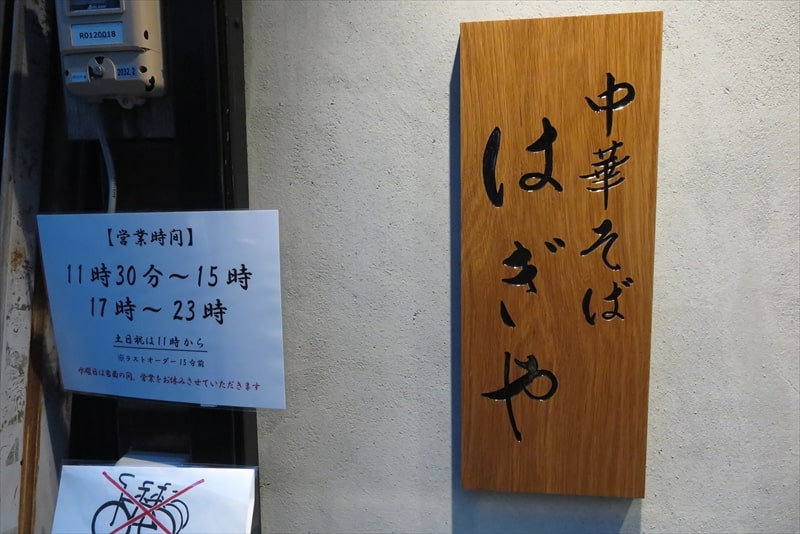 R0120018
2032.2
中華そば
はぎや
【営業時間】
11時30分～15時
17時～23時
土日祝は11時から
※ラストオーダー15分前
水曜日は当面の間、営業をお休みさせていただきます